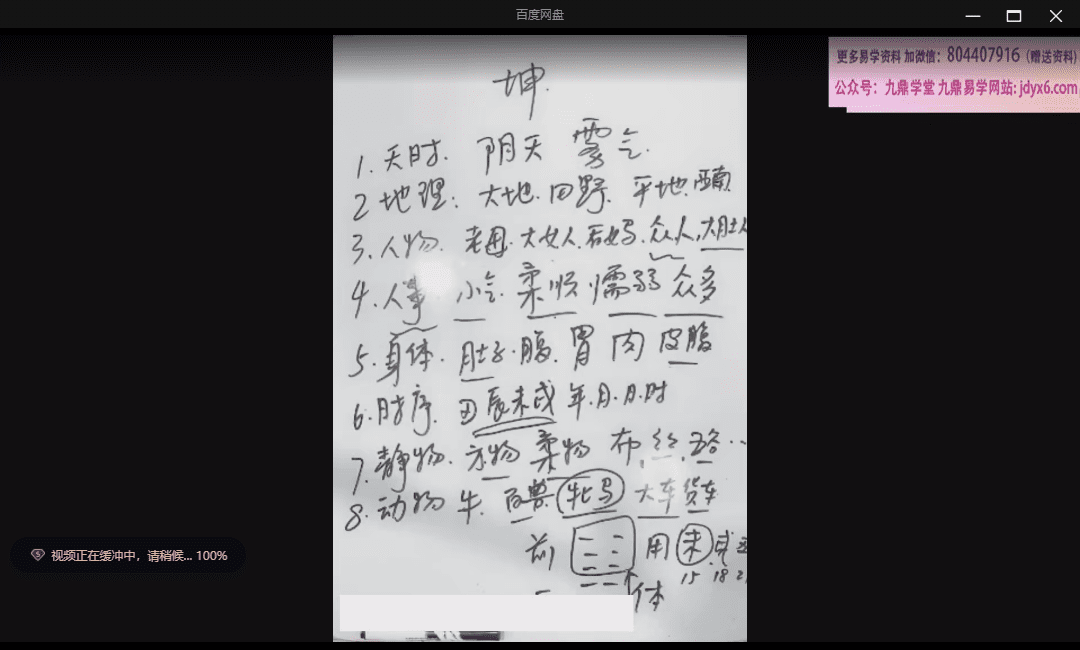 百度网盘
更多易学资料 加微信：804407916（赠送资料）
公众号：九鼎学堂 九鼎易学网站: jdyx6.com
坤.
1.天时. 阴天 雾气.
2 地理: 大地.田野. 平地.西南
3.人物. 老母.大女人.后妈.众人,大肚人
4.人事 小气.柔顺 懦弱 众多
5.身体. 肚子.腹.胃 肉 皮腹
6.时序. 丑辰未戌 年.月.日.时
7.静物. 方物 柔物 布,丝,
8.动物 牛. 百兽 牝马 大车 货车
前 用 未.戌
15 18
体
视频正在缓冲中，请稍候... 100%